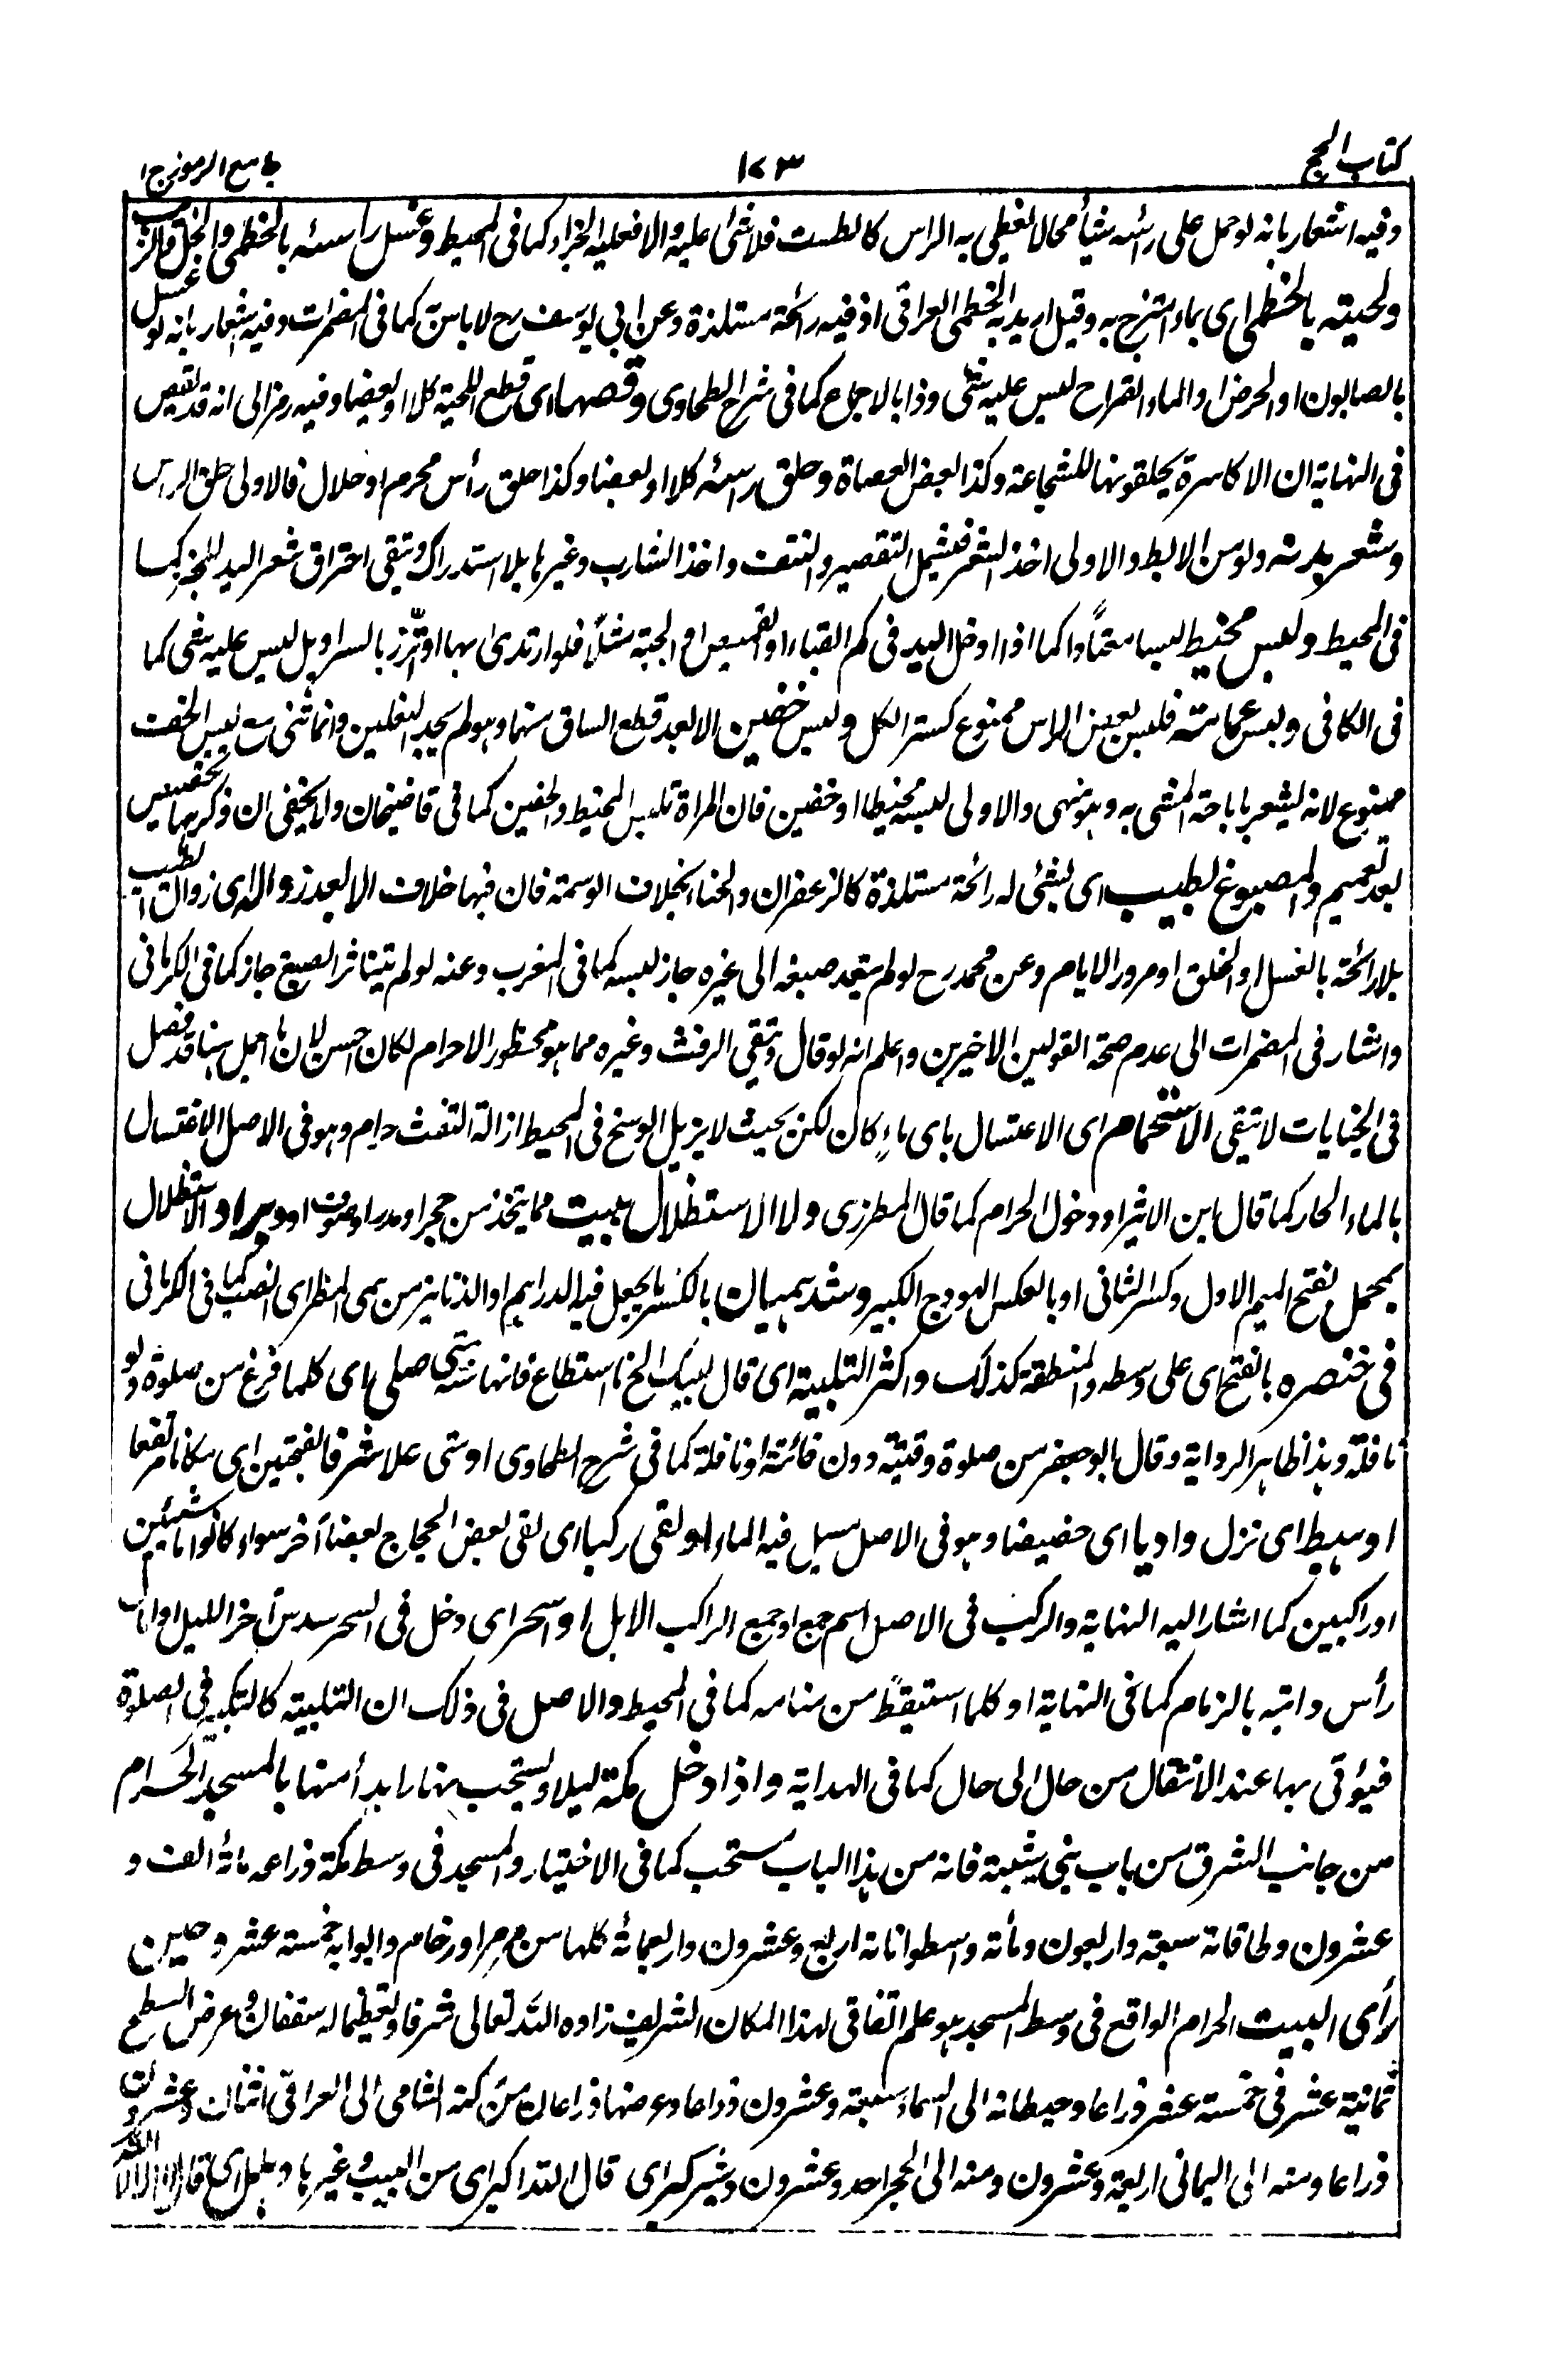 كتاب الحج
١٧٣
جامع الرموز ج ١
وفيه اشعار بانه لو حمل على رأسه شيأ مما لا يغطى به الراس كالطست فلا شئ عليه والا فعليه الجزاء كما فى المحيط وغسل راسه بالخطمى
ولحيته بالخطمى اى بماء امتزج به وقيل اريد به الخطمى العراقى اذ فيه رائحة مستلذة وعن ابى يوسف رح لا باس به كما فى المضمرات وفيه اشعار بانه لو غسل
بالصابون او الحرض او الماء القراح ليس عليه شئ وذا بالاجماع كما فى شرح الطحاوى وقصها اى قطع اللحية كلا او بعضا وفيه رمز الى انه قد يقص
فى النهاية ان الاكاسرة يحلقونها للشجاعة وكذا بعض العصاة وحلق راسه كلا او بعضا وكذا حلق رأس محرم او حلال فالاولى حلق الراس
وشعر بدنه ولو من الابط والاولى اخذ الشعر فيشمل التقصير والنتف واخذ الشارب وغيرها بلا استدراك ويتقى احتراق شعر اليد للخبز كما
فى المحيط ولبس مخيط لبسا معتادا كما اذا ادخل اليد فى كم القباء او القميص او الجبة مثلا فلو ارتدى بها او اتزر بالسراويل ليس عليه شئ كما
فى الكافى ولبس عمامته فلبس بعض الراس ممنوع كستر الكل ولبس خفين الا بعد قطع الساق منهما وهو لم يجد النعلين وانما ثنى مع لبس الخف
ممنوع لانه ليشعر باباحة المشى به وهو منهى والاولى لبسه مخيطا او خفين فان المراة تلبس المخيط والخفين كما فى قاضيخان ولا يخفى ان ذكرهما تخصيص
بعد تعميم والمصبوغ بطيب اى بشئ له رائحة مستلذة كالزعفران والحناء بخلاف الوسمة فان فيها خلاف الا بعد زواله اى زوال الطيب
بلا رائحة بالغسل او الخلق او مرور الايام وعن محمد رح لو لم يتعد صبغه الى غيره جاز لبسه كما فى المغرب وعنه لو لم يتناثر الصبغ جاز كما فى الكرمانى
واشار فى المضمرات الى عدم صحة القولين الاخيرين واعلم انه لو قال ويتقى الرفث وغيره مما هو محظور الاحرام لكان احسن لان ما اجمل هنا قد فصل
فى الجنايات لا يتقى الاستحمام اى الاغتسال باى ماء كان لكن بحيث لا يزيل الوسخ فى المحيط ازالة التفث حرام وهو فى الاصل الاغتسال
بالماء الحار كما قال ابن الاثير او دخول الحرام كما قال المطرزى ولا الاستظلال ببيت مما يتخذ من حجر او مدر او صوف او وبر او الاستظلال
بمحمل بفتح الميم الاول وكسر الثانى او بالعكس الهودج الكبير وشد هميان بالكسر ما يجعل فيه الدراهم او الدنانير من همى المطر اى انصب كما فى الكرمانى
فى خنصره بالفتح اى على وسطه والمنطقة كذلك واكثر التلبية اى قال لبيك الخ ما استطاع فانها سنة متى صلى اى كلما فرغ من صلوة ولو
نافلة وهذا ظاهر الرواية وقال ابو جعفر من صلوة وقتية دون فائتة او نافلة كما فى شرح الطحاوى او متى علا شرفا بفتحتين اى مكانا مرتفعا
او هبط اى نزل واديا اى حضيضا وهو فى الاصل مسيل فيه الماء او لقى ركبا اى لقى بعض الحجاج بعضا آخر سواء كانوا ماشيين
او راكبين كما اشار اليه النهاية والركب فى الاصل اسم جمع او جمع الراكب الابل او اسحر اى دخل فى السحر سدس آخر الليل او امال
رأس دابته بالزمام كما فى النهاية او كلما استيقظ من منامه كما فى المحيط والاصل فى ذلك ان التلبية كالتكبير فى الصلوة
فيؤتى بها عند الانتقال من حال الى حال كما فى الهداية واذا دخل مكة ليلا ويستحب نهارا بدأ منها بالمسجد الحرام
من جانب الشرق من باب بنى شيبة فانه من هذا الباب مستحب كما فى الاختيار والمسجد فى وسط مكة ذراعه مائة الف و
عشرون وطاقاته سبعة واربعون ومأته واسطواناته اربع وعشرون واربعمائة كلها من مرمر او رخام وابوابه خمسة عشر وحين
رأى البيت الحرام الواقع فى وسط المسجد هو علم اتفاقى لهذا المكان الشريف زاده الله تعالى شرفا وتعظيما له سقفان وعرض السطح
ثمانية عشر فى خمسة عشر ذراعا وحيطانه الى السماء سبعة وعشرون ذراعا وعرضها ذراعان من ركنه الشامى الى العراقى اثنان وعشرون
ذراعا ومنه الى اليمانى اربعة وعشرون ومنه الى الحجر احد وعشرون وشبر كبر اى قال الله اكبر اى من البيت وغيرها وهلل اى قال لا اله الا الله